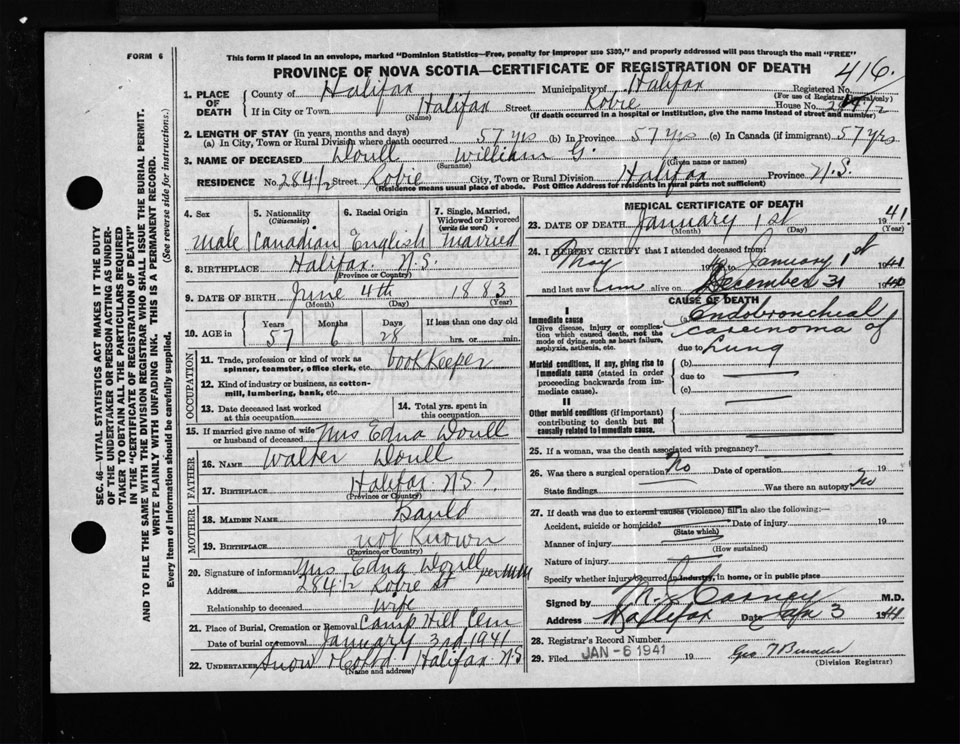 FORM 6
This form if placed in an envelope, marked "Dominion Statistics—Free, penalty for improper use $300," and properly addressed will pass through the mail "FREE"
PROVINCE OF NOVA SCOTIA—CERTIFICATE OF REGISTRATION OF DEATH
416.
1. PLACE OF DEATH
County of Halifax Municipality of Halifax Registered No.
(For use of Registrar General only)
If in City or Town Halifax Street Robie House No. 284 1/2
(Name) (If death occurred in a hospital or institution, give the name instead of street and number)
2. LENGTH OF STAY (in years, months and days)
(a) In City, Town or Rural Division where death occurred 57 yrs (b) In Province 57 yrs (c) In Canada (if immigrant) 57 yrs
3. NAME OF DECEASED Doull William G.
(Surname) (Given name or names)
RESIDENCE No. 284 1/2 Street Robie City, Town or Rural Division Halifax Province N.S.
(Residence means usual place of abode. Post Office Address for residents in rural parts not sufficient)
4. Sex 5. Nationality (Citizenship) 6. Racial Origin 7. Single, Married, Widowed or Divorced (write the word)
Male Canadian English Married
8. BIRTHPLACE Halifax N.S.
(Province or Country)
9. DATE OF BIRTH June 4th 1883
(Month) (Day) (Year)
10. AGE in Years Months Days If less than one day old
57 6 28 hrs. or min.
OCCUPATION
11. Trade, profession or kind of work as spinner, teamster, office clerk, etc. bookkeeper
12. Kind of industry or business, as cotton-mill, lumbering, bank, etc.
13. Date deceased last worked at this occupation
14. Total yrs. spent in this occupation
15. If married give name of wife or husband of deceased Mrs Edna Doull
FATHER
16. NAME Walter Doull
17. BIRTHPLACE Halifax N.S.
(Province or Country)
MOTHER
18. MAIDEN NAME Bauld
19. BIRTHPLACE not known
(Province or Country)
20. Signature of informant Mrs Edna Doull per MM
Address 284 1/2 Robie St
Relationship to deceased Wife
21. Place of Burial, Cremation or Removal Camp Hill Cem
Date of burial or removal January 3rd 1941
22. UNDERTAKER Snow Halifax N.S
(Name and address)
MEDICAL CERTIFICATE OF DEATH
23. DATE OF DEATH January 1st 1941
(Month) (Day) (Year)
24. I HEREBY CERTIFY that I attended deceased from
May 19 to January 1st 1941
and last saw him alive on December 31 1940
CAUSE OF DEATH
I
Immediate cause (a) endobroncheal
Give disease, injury or complication which caused death, not the mode of dying, such as heart failure, asphyxia, asthenia, etc.
carcinoma of
due to Lung
Morbid conditions, if any, giving rise to immediate cause (stated in order proceeding backwards from immediate cause).
(b)
due to
(c)
II
Other morbid conditions (if important) contributing to death but not causally related to immediate cause.
25. If a woman, was the death associated with pregnancy?
26. Was there a surgical operation? No Date of operation 19
State findings Was there an autopsy? No
27. If death was due to external causes (violence) fill in also the following:—
Accident, suicide or homicide? Date of injury 19
(State which)
Manner of injury
(How sustained)
Nature of injury
Specify whether injury occurred in industry, in home, or in public place
Signed by M.D.
Address Halifax Date Jan 3 1941
28. Registrar's Record Number
29. Filed JAN - 6 1941 19
(Division Registrar)
SEC. 46—VITAL STATISTICS ACT MAKES IT THE DUTY
OF THE UNDERTAKER OR PERSON ACTING AS UNDER-
TAKER TO OBTAIN ALL THE PARTICULARS REQUIRED
IN THE "CERTIFICATE OF REGISTRATION OF DEATH"
AND TO FILE THE SAME WITH THE DIVISION REGISTRAR WHO SHALL ISSUE THE BURIAL PERMIT.
WRITE PLAINLY WITH UNFADING INK. THIS IS A PERMANENT RECORD.
Every item of information should be carefully supplied. (See reverse side for instructions.)